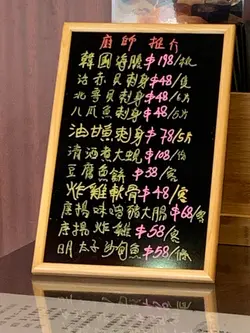 廚師推介
韓國燒腸$198/份
活赤貝刺身$48/隻
北寄貝刺身$48/5片
八爪魚刺身$48/5片
油甘魚刺身$78/5片
清酒煮大蜆$108/份
豆腐魚餅$38/客
炸雞軟骨$48/客
唐揚味噌豬大腸$68/客
唐揚炸雞$58/客
明太子沙甸魚$58/條